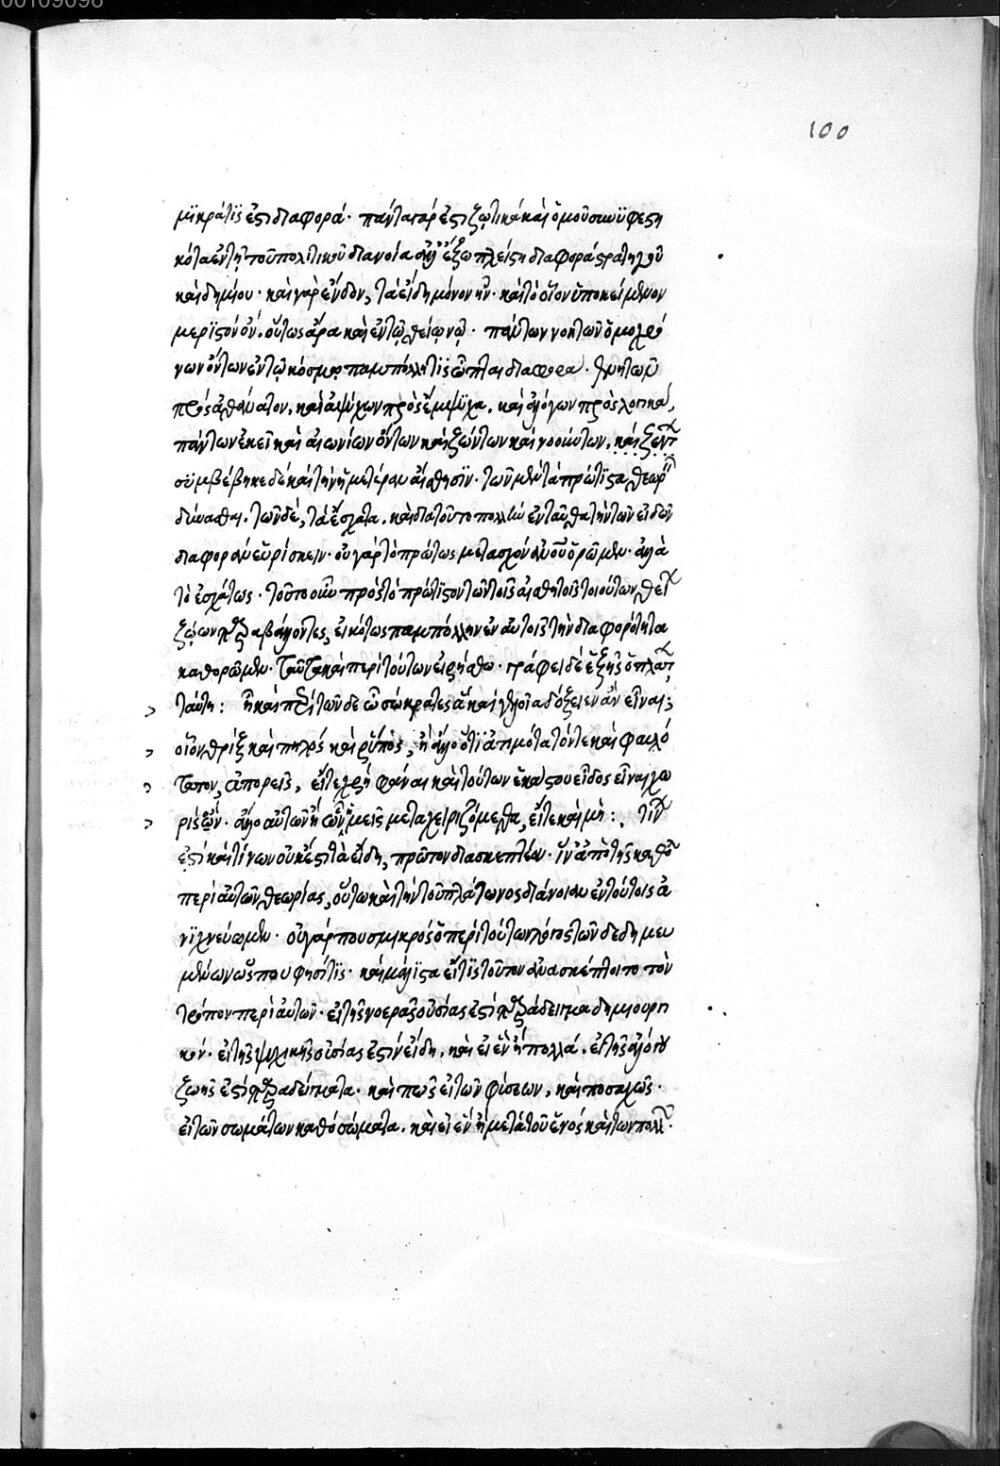 00109098
100
μϊκρά τΐς ἐστι διαφορά· πάντα γάρ ἐστι ζωτικά καὶ ὁμοῦ συνϋφεστη
κότα ἐν τῇ τοῦ πολιτικοῦ διανοία ὧν ἔξω πλείστη διαφορά στρατηγοῦ
καὶ δημίου· καὶ γὰρ ἔνδον, τὰ εἴδη μόνον ἦν· καὶ τὸ οἷον ὑποκείμενον
μερϊστὸν ὄν. οὕτως ἄρα καὶ ἐν τῶ θείω νῶ· πάντων νοητῶν ὁμολο
γων ὄντων ἐν τῶ κόσμω παμπόλλη τΐς ὦπται διαφορα· θνητῶν
πρὸς ἀθάνατον, καὶ ἀψύχων πρὸς ἔμψϋχα, καὶ ἀλόγων πρὸς λογικά,
πάντων ἐκεῖ καὶ αἰωνίων ὄντων καὶ ζώντων καὶ νοούντων, καὶ
σϋμβέβηκε δὲ καὶ τὴν ἡμετέραν αἴσθησϊν· τῶν μὲν τὰ πρώτϊστα θεωρ
δύνασθαι. τῶν δέ, τὰ ἔσχατα. καὶ διὰ τοῦτο πολλὴν ἐνταῦθα τὴν τῶν εἰδῶν
διαφορὰν εὑρίσκειν· οὐ γὰρ τὸ πρώτως μετασχὸν αὐτοῦ ὁρῶμεν· ἀλλὰ
τὸ ἐσχάτως· τοῦτο οὖν πρὸς τὸ πρώτϊστον τῶν τοῖς αἰσθητοῖς τοιούτων θετ
ζώων παραβάλλοντες, εἰκότως παμπόλλην ἐν αὐτοῖς τὴν διαφορότητα
καθορῶμεν· ταῦτα καὶ περὶ τούτων εἰρήσθω· γράφει δὲ ἑξῆς ὁ πλάτ
ταύτη: ἦ καὶ περὶ τῶν δε ὦ σώκρατες ἃ καὶ γελοῖα δόξειεν ἂν εἶναι;
οἷον θρὶξ καὶ πηλὸς καὶ ῥύπὸς, ἢ ἄλλο ὅ τϊ ἀτιμότατόν τε καὶ φαυλό
τατον, ἀπορεῖς, εἴτε χρὴ φάναι καὶ τούτων ἑκάστου εἶδος εἶναι χω
ρὶς ὂν· ἄλλο αὐτῶν ἢ ὧν ἡμεῖς μεταχειριζόμεθα, εἴτε καὶ μή: τίν
ἐστὶ καὶ τίνων οὐκ ἔστι τὰ εἴδη, πρῶτον διασκεπτέον· ἵν' ἀπὸ τῆς καθό
περὶ αὐτῶν θεωρίας, οὕτω καὶ τὴν τοῦ πλάτωνος διάνοιαν ἐν τούτοις ἀ
νϊχνεύσωμεν· οὐ γάρ που σμικρὸς ὁ περὶ τούτων λόγος τῶν δεδημευ
μένων ὥς που φησί τϊς· καὶ μάλϊστα εἴ τϊς τοῦτον ἀνασκέπτοιτο τὸν
τρόπον περὶ αὐτῶν· εἰ τῆς νοερᾶς οὐσίας ἐστὶ παράδειγμα δημιουργι
κόν· εἰ τῆς ψυχικῆς οὐσίας ἐστὶν εἴδη, καὶ εἰ ἓν ἢ πολλά. εἰ τῆς ἀλόγου
ζωῆς ἐστὶ παραδείγματα· καὶ πῶς εἰ τῶν φύσεων, καὶ ποσαχῶς·
εἰ τῶν σωμάτων καθὸ σώματα. καὶ εἰ ἓν ἢ μετὰ τοῦ ἑνός καὶ τῶν πολλ